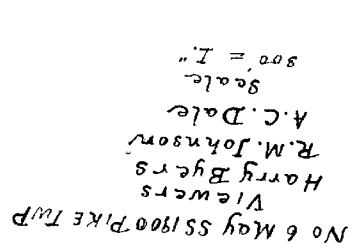 No 6 May SS 1900 PIKE TWP
Viewers
Harry Byers
R.M. Johnson
A.C. Dale
Scale
300 = 1."